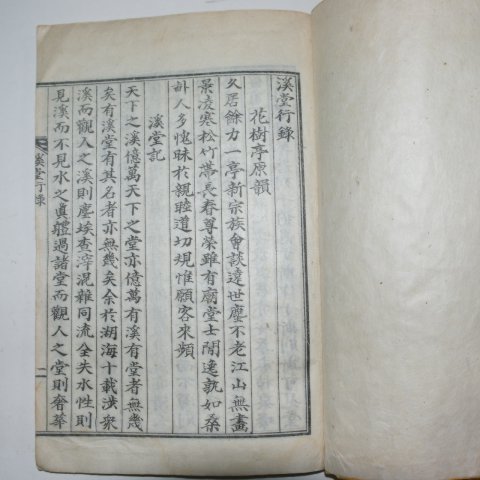 溪堂行錄
花樹亭原韻
久居餘力一亭新宗族會談遠世塵不老江山無畫
景凌寒松竹帶長春尊榮雖有廟堂士閒逸孰如桑
計人多愧昧於親睦道切規惟願客來頻
溪堂記
天下之溪億萬天下之堂亦億萬有溪有堂者無幾
矣有溪堂有其名者亦無幾矣余於湖海十載涉衆
溪而觀人之溪則塵埃查滓混雜同流全失水性則
見溪而不見水之眞體過諸堂而觀人之堂則奢華
溪堂行錄
一